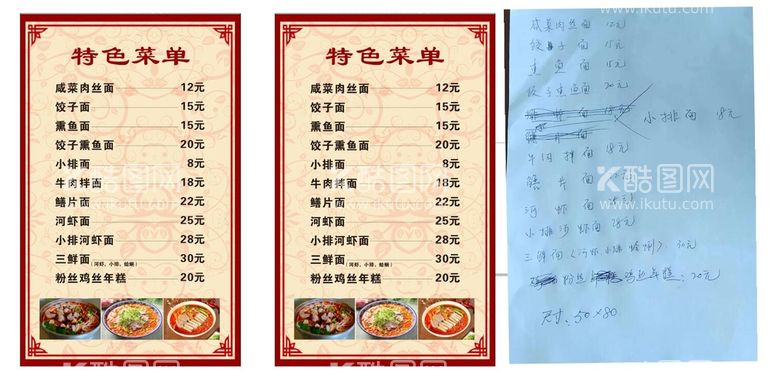 特色菜单
咸菜肉丝面 12元
饺子面 15元
熏鱼面 15元
饺子熏鱼面 20元
小排面 8元
牛肉拌面 18元
鳝片面 22元
河虾面 25元
小排河虾面 28元
三鲜面(河虾、小排、蛤蜊) 30元
粉丝鸡丝年糕 20元
特色菜单
咸菜肉丝面 12元
饺子面 15元
熏鱼面 15元
饺子熏鱼面 20元
小排面 8元
牛肉拌面 18元
鳝片面 22元
河虾面 25元
小排河虾面 28元
三鲜面(河虾、小排、蛤蜊) 30元
粉丝鸡丝年糕 20元
咸菜肉丝面 12元
饺子面 15元
熏鱼面 15元
饺子熏鱼面 20元
小排面 18元
牛肉拌面 18元
鳝片面
河虾面
小排河虾面 28元
三鲜面(河虾小排蛤蜊) 30元
粉丝鸡丝年糕:20元
尺寸:50×80
酷图网
www.ikutu.com
酷图网
www.ikutu.com
酷图网
www.ikutu.com